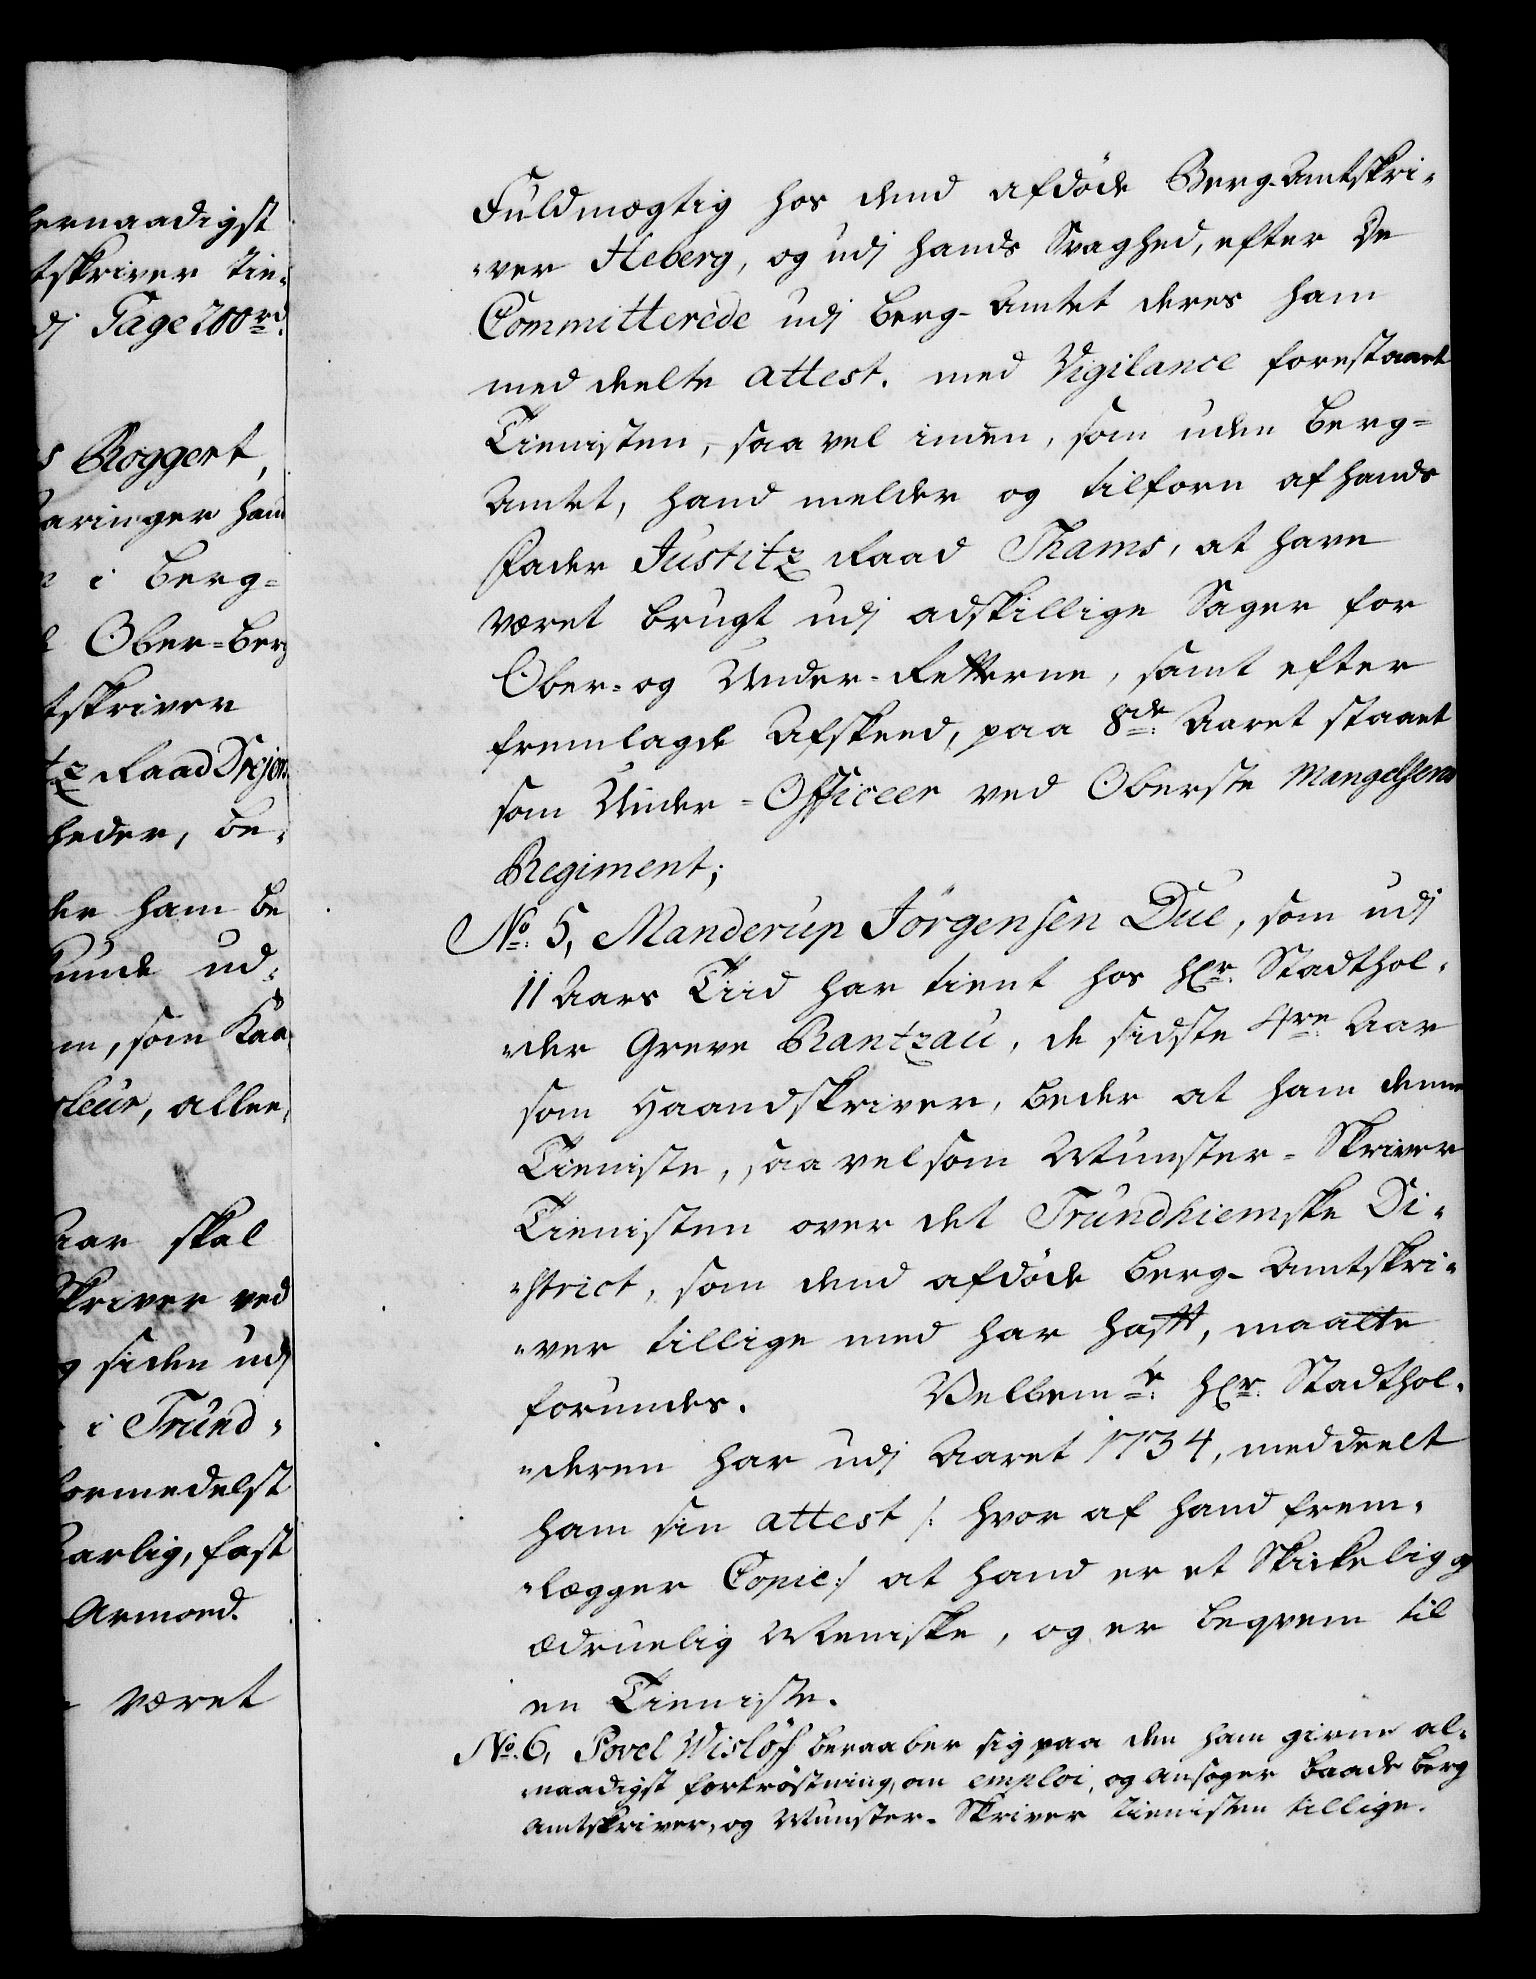 ernaadigst
tskriver Tie-
dj Tage 200rd.
s Roggert,
aringer hand
e i Berg-
Ober-Berg
tskriver
tz Raad Drejer
heder, be-
der ham be
kunde ud-
m, som Kaa
leur, allee,
aar skal
Skriver ved
g siden udj
i Trund-
formedelst
aarlig, fast
Armoed.
været
Fuldmægtig hos dend afdöde Berg-Amtskri-
-ver Heberg, og udj hands Svaghed, efter De
Committerede udj Berg-Amtet deres ham
meddeelte attest, med Vigilance forestaaet
Tienisten, saavel inden, som uden Berg-
Amtet, hand melder og tilforn af hands
Fader Justitz Raad Thams, at have
været brugt udj adskillige Sager for
Ober- og Under-Retterne, samt efter
fremlagde Afskeed, paa 8de Aaret staaet
som Under-Officeer ved Oberste Mangelsens
Regiment;
No. 5, Manderup Jörgensen Due, som udj
11 Aars Tiid har tient hos Hr. Stadthol-
-der Greve Rantzau, de sidste 4re Aar
som Haandskriver, beder at ham denne
Tieniste, saavelsom Munster-Skriver
Tienisten over det Trundhiemske Di-
-strict, som dend afdöde Berg-Amtskri-
-ver tillige med har hafft, maatte
forundes. Velbemte Hr. Stadthol-
-deren har udj Aaret 1734, meddeelt
ham sin attest /: hvor af hand frem-
-lægger Copie :/ at hand er et Skikkelig og
ædruelig Menniske, og er beqvem til
en Tieniste.
No. 6, Povel Wislöf beraaber sig paa den ham givne al-
naadigst fortröstning, om emploi, og ansöger baade Berg
Amtskriver, og Munster-Skriver Tienisten tillige.